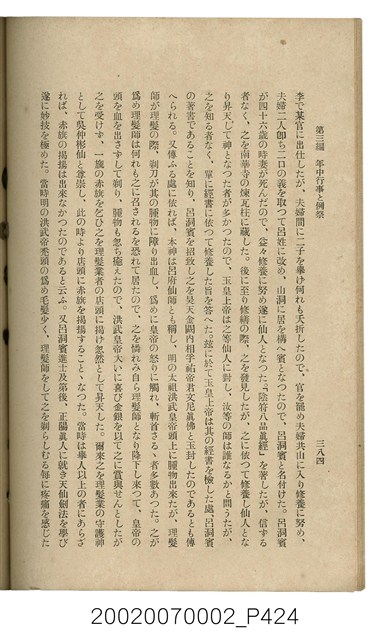 第三編　年中行事と例祭
三八四
李で某官に出仕したが、夫婦間に二子を擧げ何れも夭折したので、官を罷め夫婦共山に入り修養に努め、
夫婦二人卽ち二口の義を取つて呂姓に改め、山洞に居を構へ賓となつたので、呂洞賓と名付けた。呂洞賓
が四十六歳の時妻が死んだので、益々修養に努め遂に仙人となつた。「陰符八品眞經」を著したが、信する
者なく、之を南華寺の煉瓦柱に藏した。後に至り修繕の際、之を發見したが、之に依つて修養し仙人とな
り昇天して神となつた者が多かつたので、玉皇上帝は之等仙人に對し、汝等の師は誰なるかと問うたが、
之を知る者なく、單に經書に依つて修養した旨を答へた。茲に於て玉皇上帝は其の經書を檢した處、呂洞賓
の著書であることを知り、呂洞賓を招致し之を昊天金闕內相孚祐帝君文尼眞佛と玉封したのであるとも傳
へられる。又傳ふる處に依れば、本神は呂府仙師とも稱し、明の太祖洪武皇帝頭上に腫物出來たが、理髮
師が理髮の際、剃刀が其の腫物に障り出血し、爲めに皇帝の怒りに觸れ、斬首さるゝ者多數あつた。之が
爲め理髮師は何れも之に召されるを恐れて居たので、之を憐れみ自ら理髮師となり降下し來つて、皇帝の
頭を血を出さずして剃り、腫物も忽ち極えたので、洪武皇帝大いに喜び金銀を以て之に賞與せんとしたが
之を受けず、一旒の赤旗を乞ひ之を理髮業者の店頭に揭け忽然として昇天した。爾來之を理髮業の守護神
として吳仲彬仙と尊崇し、此の時より店頭に赤旗を揭揚することゝなつた。當時は擧人以上の者にあらざ
れば、赤旗の揭揚は出來なかつたのであると云ふ。又呂洞賓進士及第後、正陽眞人に就き天仙劍法を學び
遂に妙技を極めた。當時明の洪武帝禿頭の爲め毛髮少く、理髮師をして之を剃らしむる每に疼痛を感じた
20020070002_P424